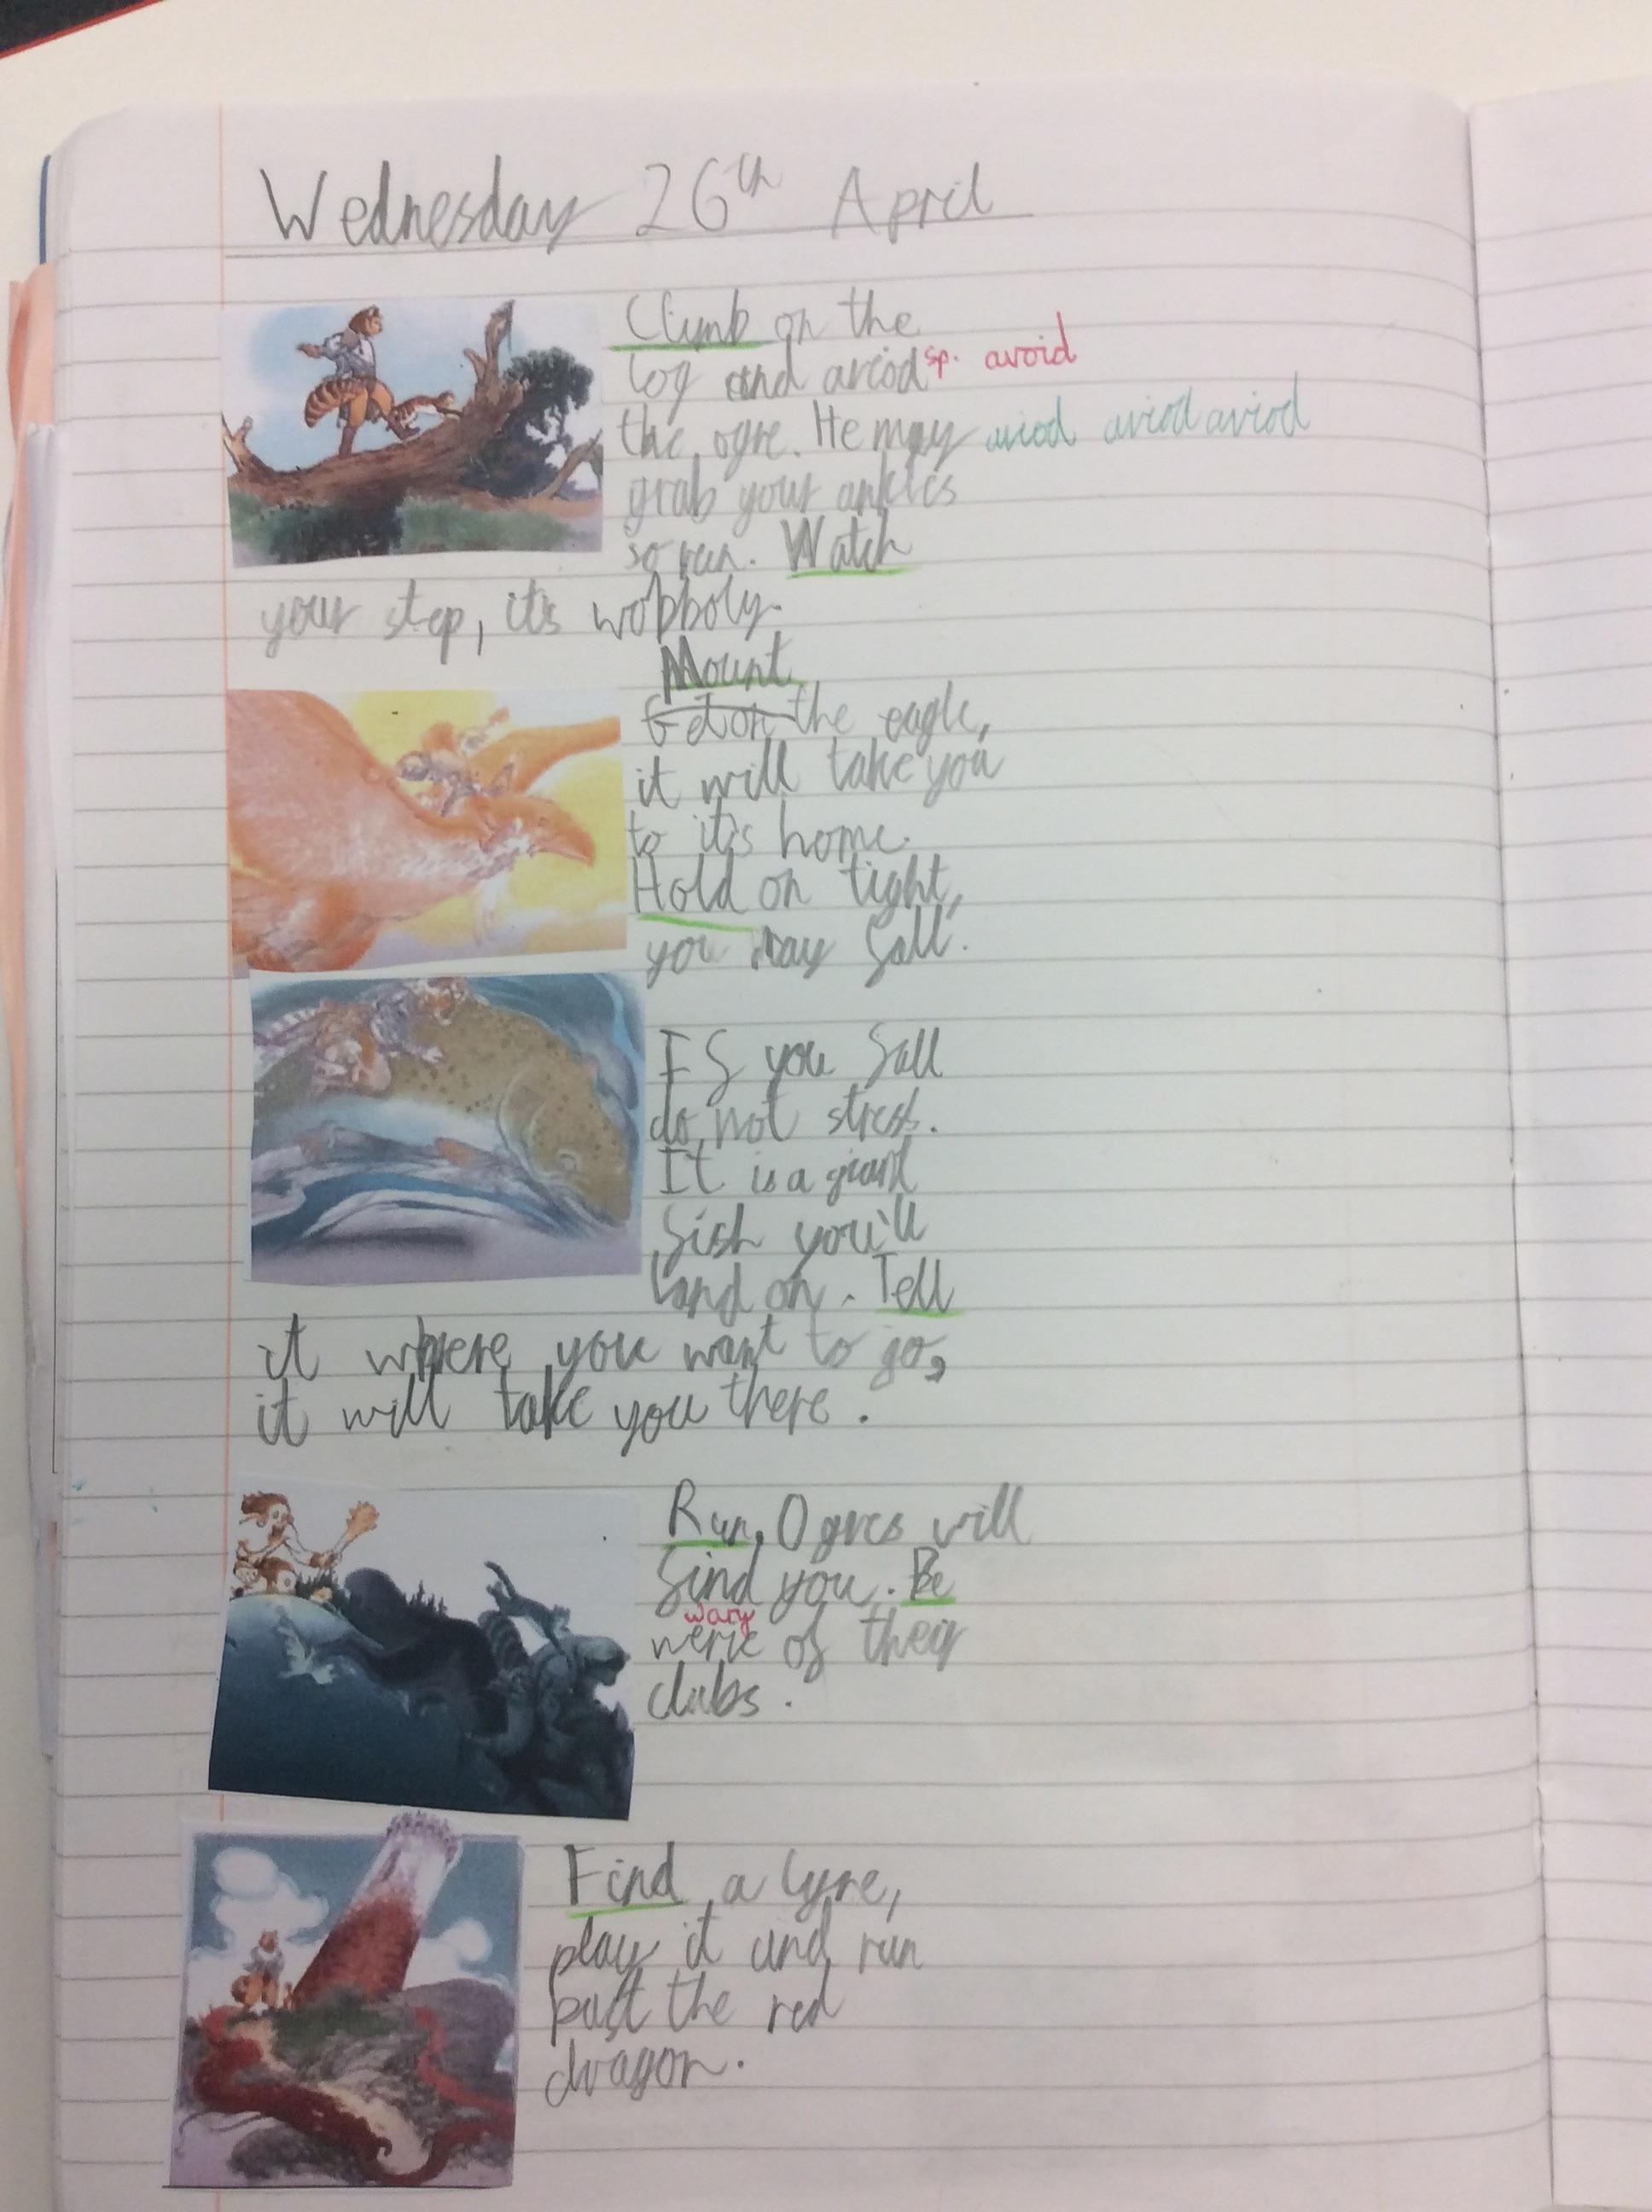 Wednesday 26th April
Climb on the
log and aviod sp. avoid
the ogre. He may aviod aviod aviod
grab your ankles
so run. Watch
your step, it's wobboly.
Mount
Get on the eagle,
it will take you
to it's home.
Hold on tight,
you may fall.
If you fall
do not stress.
It is a giant
fish you'll
land on. Tell
it where you want to go,
it will take you there.
Run, Ogres will
find you. Be
wary
werie of their
clubs.
Find a lyre,
play it and run
past the red
dragon.